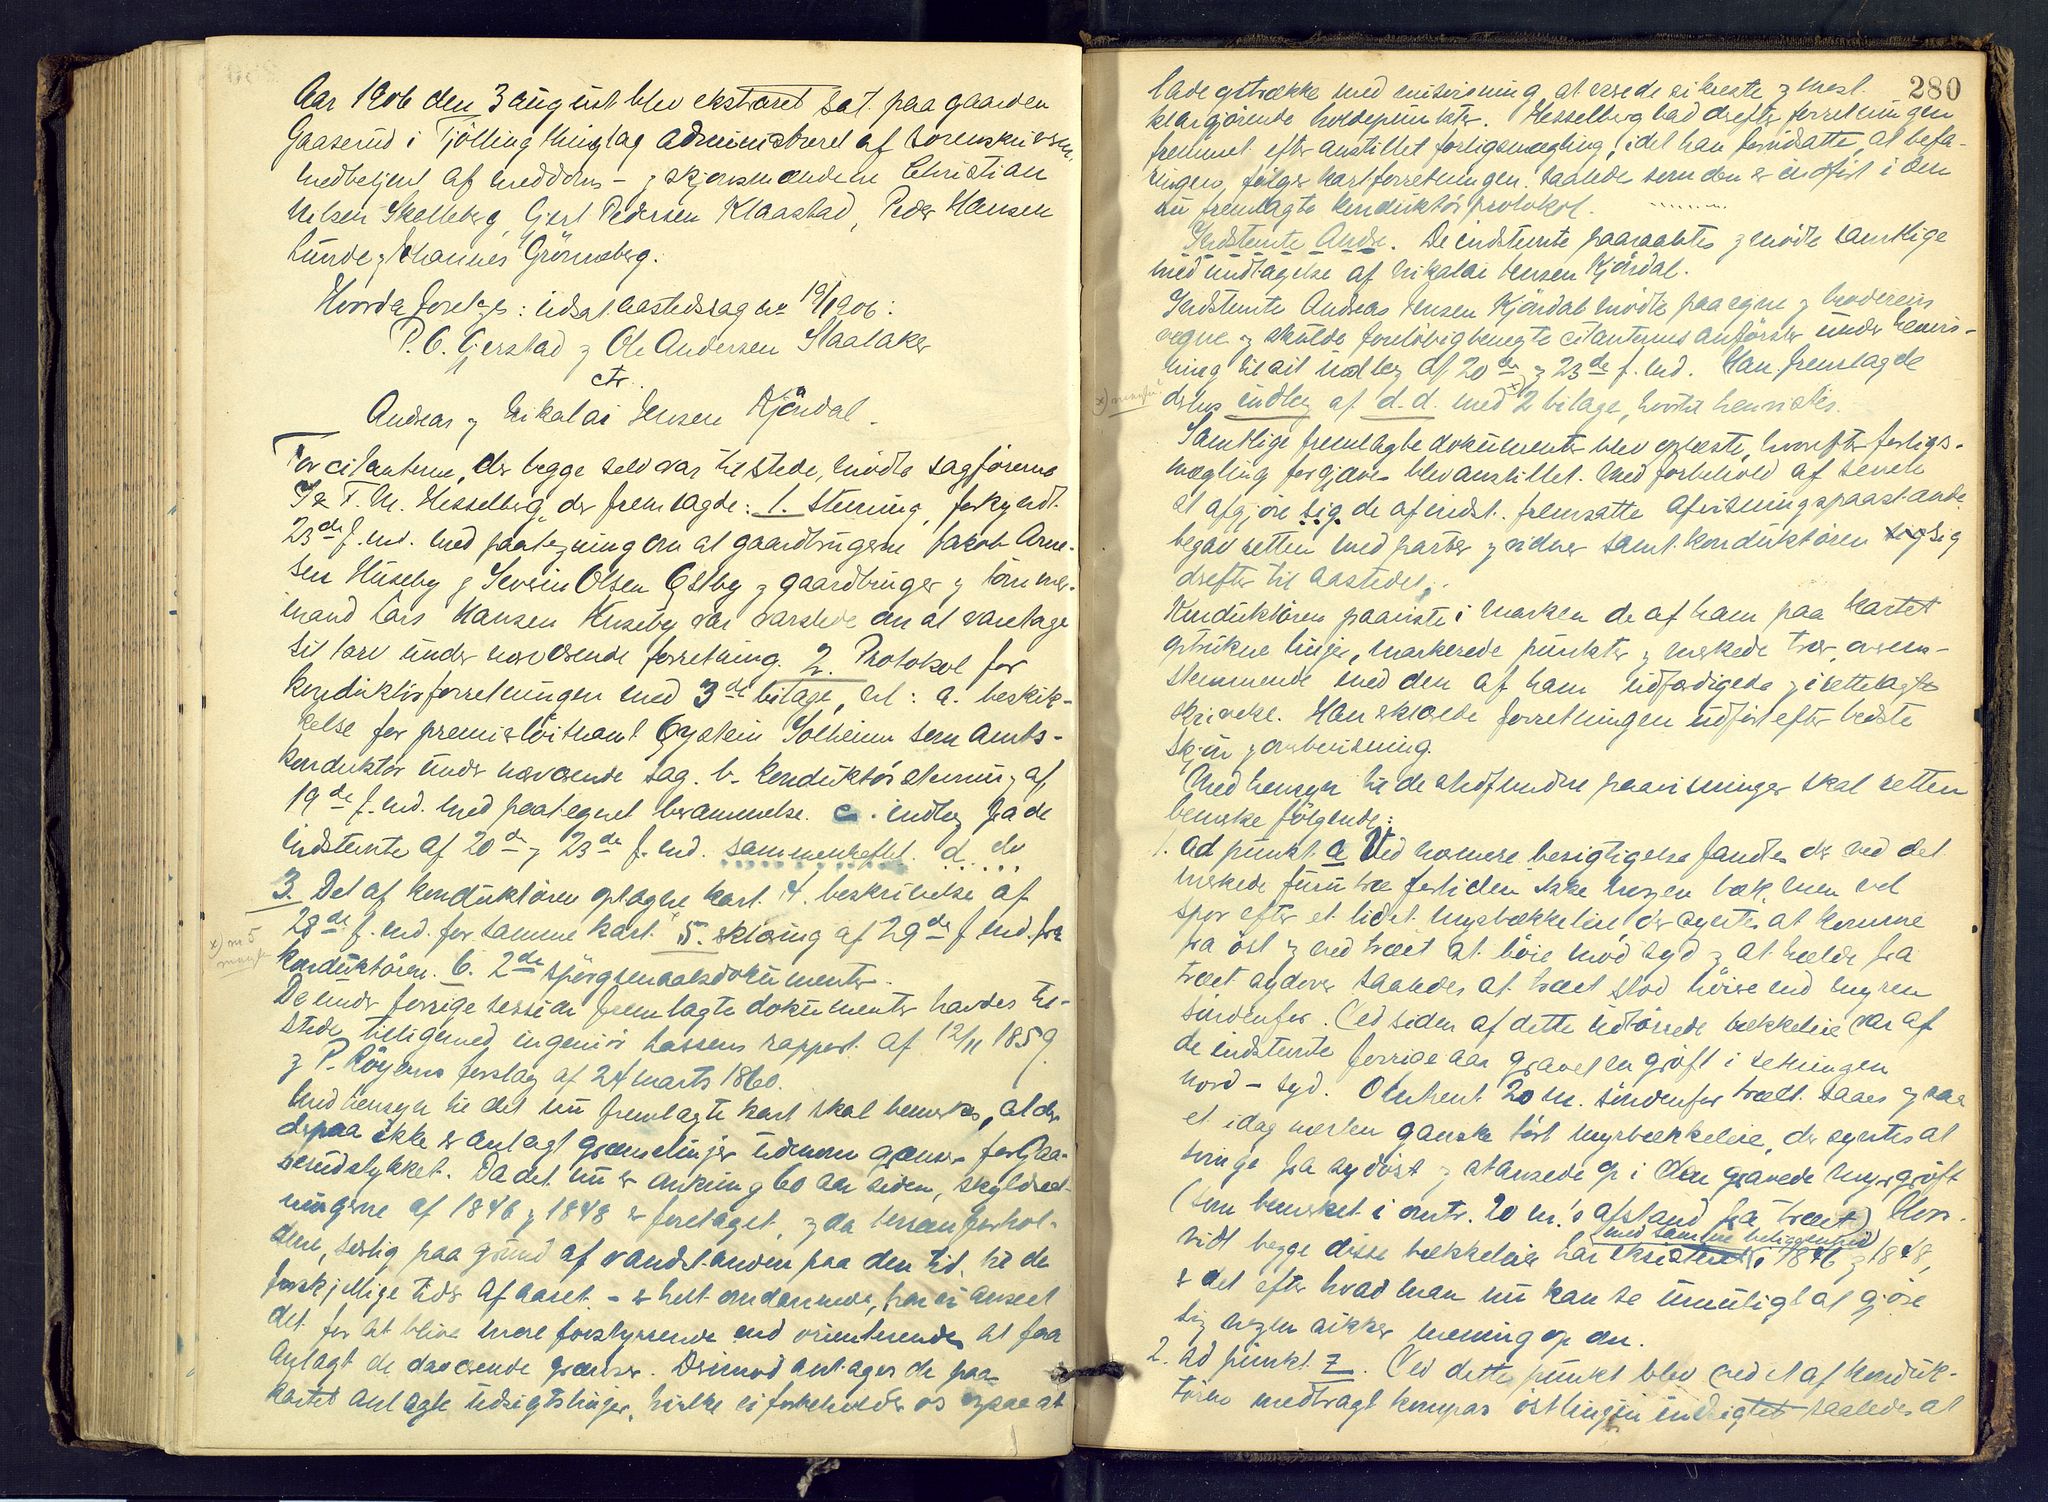 Aar 1906 den 3 august blev ekstraret sat paa gaarden
Gaaserud i Tjölling thinglag administreret af sorenskriveren
medbetjent af meddoms- og skjönsmændene Christian
Nilsen Skalleberg, Gjert Pedersen Klaastad, Peder Hansen
Lunde og Johannes Grönneberg.
Hvorda foretoges: udsat aastedssag fra 19/1 1906:
P. C. Gjerstad og Ole Andersen Skaalaker
ctr.
Andreas og Nikolai Jensen Kjördal.
For citanterne, der begge selv var tilstede, mödte sagförerne
T. M. Hesselberg, der fremlagde: 1. Stevning, forkyndt
23de f. md. med paategning om at gaardbrugerne Jakob Arne-
sen Huseby og Severin Olsen Östby og gaardbruger og tömmer-
mand Lars Hansen Huseby var varslede om at varetage
sit tarv under nærværende forretning. 2. Protokol for
konduktörforretningen med 3de bilage, nl: a. beskik-
kelse for premierlöitnant Eystein Solheim som amts-
konduktör under nærværende sag. b. konduktörstevning af
19de f. md. med paategnet berammelse. c. indlæg fra de
indstevnte af 20de og 23de f. md. sammenheftet. d. do
3. Det af konduktören optagne kart. 4. beskrivelse af
28de f. md. for samme kart. x) 5. erklæring af 29de f. md. fra
x) nr 5
mangler
konduktören. 6. 2de spörgsmaalsdokumenter.
De under forrige session fremlagte dokumenter havdes til-
stede, tilligemed ingeniör Lassens rapport af 12/11 1859
og P. Röyems forslag af 24 marts 1860.
Med hensyn til det nu fremlagte kart skal bemerkes, at der
derpaa ikke er anlagt grænselinjer udenom grænser for Gaa-
serudstykket. Da det nu er omkring 60 aar siden, skyldsæt-
ningerne af 1846 og 1848 er foretaget, og da terrænforhol-
dene, særlig paa grund af vandstanden paa den tid, til de
forskjellige tider af aaret - er helt omdannede, har vi anseet
det for at blive mere forstyrrende end orienterende at faa
anlagt de daværende grænser. Derimod antages de paa
kartet anlagte udsigtslinjer, hvilke vi forbeholder os ogsaa at
280
lade optrække med misvisning, at være de sikreste og mest
klargjörende holdepunkter. Hesselberg bad derefter forretningen
fremmet efter anstillet forligsmægling, idet han forudsatte, at befa-
ringen fölger kartforretningen saaledes som den er indfört i den
nu fremlagte konduktörprotokol.
Indstevnte Andr. De indstevnte paaraabtes og mödte samtlige
med undtagelse af Nikolai Jensen Kjördal.
Indstevnte Andreas Jensen Kjördal mödte paa egne og broderens
vegne og skulde forelöbig benegte citanternes anförsler under henvis-
ning til sit indlæg af 20de og 23de f. md. Han fremlagde
x) mangler
derhos indlæg af d.d. med x) 2 bilage, hvortil henvistes.
Samtlige fremlagte dokumenter blev oplæste, hvorefter forligs-
mægling forgjæves blev anstillet. Med forbehold af senere
at afgjöre sig de af indst. fremsatte afvisningspaastande
begav retten med parter og vidner samt konduktören sig
derefter til aastedet.
Konduktören paaviste i marken de af ham paa kartet
optrukne linjer, markerede punkter og merkede trær, overen-
stemmende med den af ham udfærdigede og i rette lagte
skrivelse. Han erklærede forretningen udfört efter bedste
skjön og overbevisning.
Med hensyn til de stedfundne paavisninger skal retten
bemerke fölgende:
1. ad punkt a. Ved nærmere besigtigelse fandtes der ved det
merkede furutræ for tiden ikke nogen bæk, men vel
spor efter et lidet myrbækkeleie, der syntes at komme
fra öst og ved træet at böie mod syd og at helde fra
træet sydover saaledes at træet stod höiere end myren
söndenfor. Ved siden af dette udtörrede bækkeleie var af
de indstevnte forrige aar gravet en gröft i retningen
nord - syd. Omtrent 20 m. söndenfor træet saaes ogsaa
et idag næsten ganske tört myrbækkeleie, der syntes at
svinge fra sydöst og stansede op i den gravede myrgröft
(som bemerket i omtr. 20 m.'s afstand fra træet). Hvor-
vidt begge disse bækkeleier har eksisteret (med samme beliggenhed) i 1846 og 1848,
er det efter hvad man nu kan se umuligt at gjöre
sig nogen sikker mening op om.
2. ad punkt z. Ved dette punkt blev ved et af konduk-
tören medbragt kompas östlinjen indsigtet saaledes at